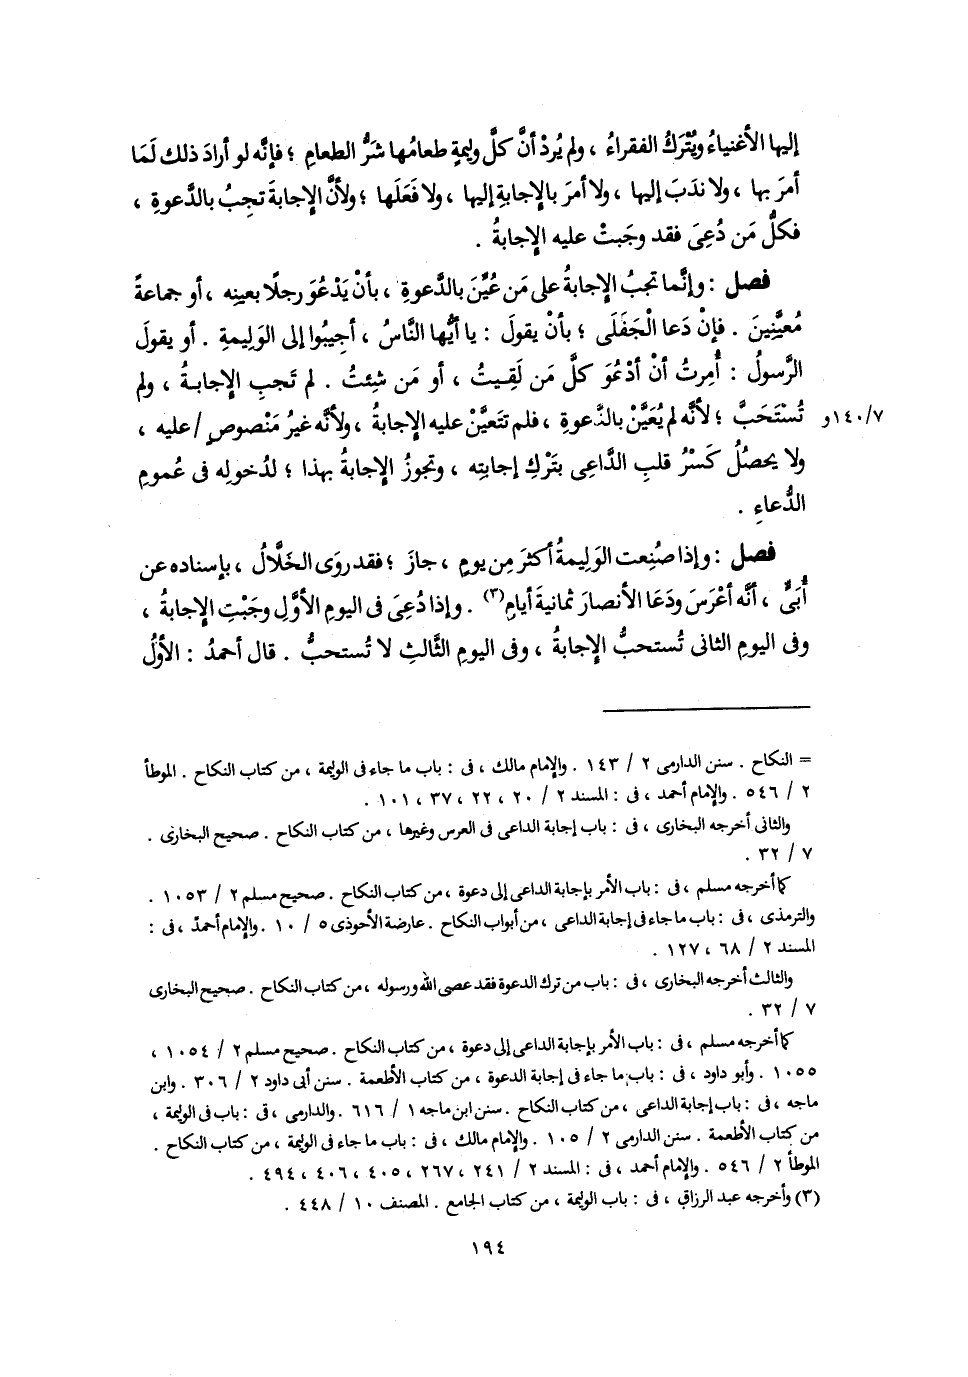 إليها الأغنياءُ ويُتْرَكُ الفقراءُ ، ولم يُرِدْ أنَّ كلَّ وليمةٍ طعامُها شَرُّ الطعامِ ؛ فإنَّه لو أرادَ ذلك لَمَا
أمرَ بها ، ولا ندَبَ إليها ، ولا أمرَ بالإجابةِ إليها ، ولا فَعَلَها ؛ ولأنَّ الإجابةَ تجِبُ بالدَّعوةِ ،
فكلُّ مَن دُعِىَ فقد وجَبتْ عليه الإجابةُ .
فصل : وإنَّما تجبُ الإجابةُ على مَن عُيِّنَ بالدَّعوةِ ، بأنْ يَدْعُوَ رجلًا بعينِه ، أو جماعةً
مُعيَّنِينَ . فإنْ دَعا الْجَفَلَى ؛ بأنْ يقولَ : يا أيُّها النَّاسُ ، أجيبُوا إلى الوَلِيمةِ . أو يقولَ
الرَّسولُ : أُمِرتُ أنْ أدْعُوَ كلَّ مَن لَقِيتُ ، أو مَن شِئتُ . لم تَجبِ الإجابةُ ، ولم
تُسْتَحَبَّ ؛ لأنَّه لم يُعَيَّنْ بالدَّعوةِ ، فلم تتَعيَّنْ عليه الإجابةُ ، ولأنَّه غيرُ مَنْصوصٍ / عليه ، ٧/١٤٠و
ولا يحصُلُ كَسْرُ قلبِ الدَّاعِى بتَرْكِ إجابتِه ، وتجوزُ الإجابةُ بهذا ؛ لدُخولِه فى عُمومِ
الدُّعاءِ .
فصل : وإذا صُنِعت الوَلِيمةُ أكثرَ مِن يومٍ ، جازَ ؛ فقد روَى الخَلَّالُ ، بإسنادِه عن
أُبَىٍّ ، أنَّه أعْرَسَ ودَعَا الأنصارَ ثمانيةَ أيامٍ(٣) . وإذا دُعِىَ فى اليومِ الأوَّلِ وجَبْتِ الإجابةُ ،
وفى اليومِ الثانى تُستحبُّ الإجابةُ ، وفى اليومِ الثَّالثِ لا تُستحبُّ . قال أحمدُ : الأولُ
= النكاح . سنن الدارمى ٢ / ١٤٣ . والإمام مالك ، فى : باب ما جاء فى الوليمة ، من كتاب النكاح . الموطأ
٢ / ٥٤٦ . والإمام أحمد ، فى : المسند ٢ / ٢٠ ، ٢٢ ، ٣٧ ، ١٠١ .
والثانى أخرجه البخارى ، فى : باب إجابة الداعى فى العرس وغيرها ، من كتاب النكاح . صحيح البخارى .
٧ / ٣٢ .
كما أخرجه مسلم ، فى : باب الأمر بإجابة الداعى إلى دعوة ، من كتاب النكاح . صحيح مسلم ٢ / ١٠٥٣ .
والترمذى ، فى : باب ما جاء فى إجابة الداعى ، من أبواب النكاح . عارضة الأحوذى ٥ / ١٠ . والإمام أحمد ، فى :
المسند ٢ / ٦٨ ، ١٢٧ .
والثالث أخرجه البخارى ، فى : باب من ترك الدعوة فقد عصى الله ورسوله ، من كتاب النكاح . صحيح البخارى
٧ / ٣٢ .
كما أخرجه مسلم ، فى : باب الأمر بإجابة الداعى إلى دعوة ، من كتاب النكاح . صحيح مسلم ٢ / ١٠٥٤ ،
١٠٥٥ . وأبو داود ، فى : باب ما جاء فى إجابة الدعوة ، من كتاب الأطعمة . سنن أبى داود ٢ / ٣٠٦ . وابن
ماجه ، فى : باب إجابة الداعى ، من كتاب النكاح . سنن ابن ماجه ١ / ٦١٦ . والدارمى ، فى : باب فى الوليمة ،
من كتاب الأطعمة . سنن الدارمى ٢ / ١٠٥ . والإمام مالك ، فى : باب ما جاء فى الوليمة ، من كتاب النكاح .
الموطأ ٢ / ٥٤٦ . والإمام أحمد ، فى : المسند ٢ / ٢٤١ ، ٢٦٧ ، ٤٠٥ ، ٤٠٦ ، ٤٩٤ .
(٣) وأخرجه عبد الرزاق ، فى : باب الوليمة ، من كتاب الجامع . المصنف ١٠ / ٤٤٨ .
١٩٤